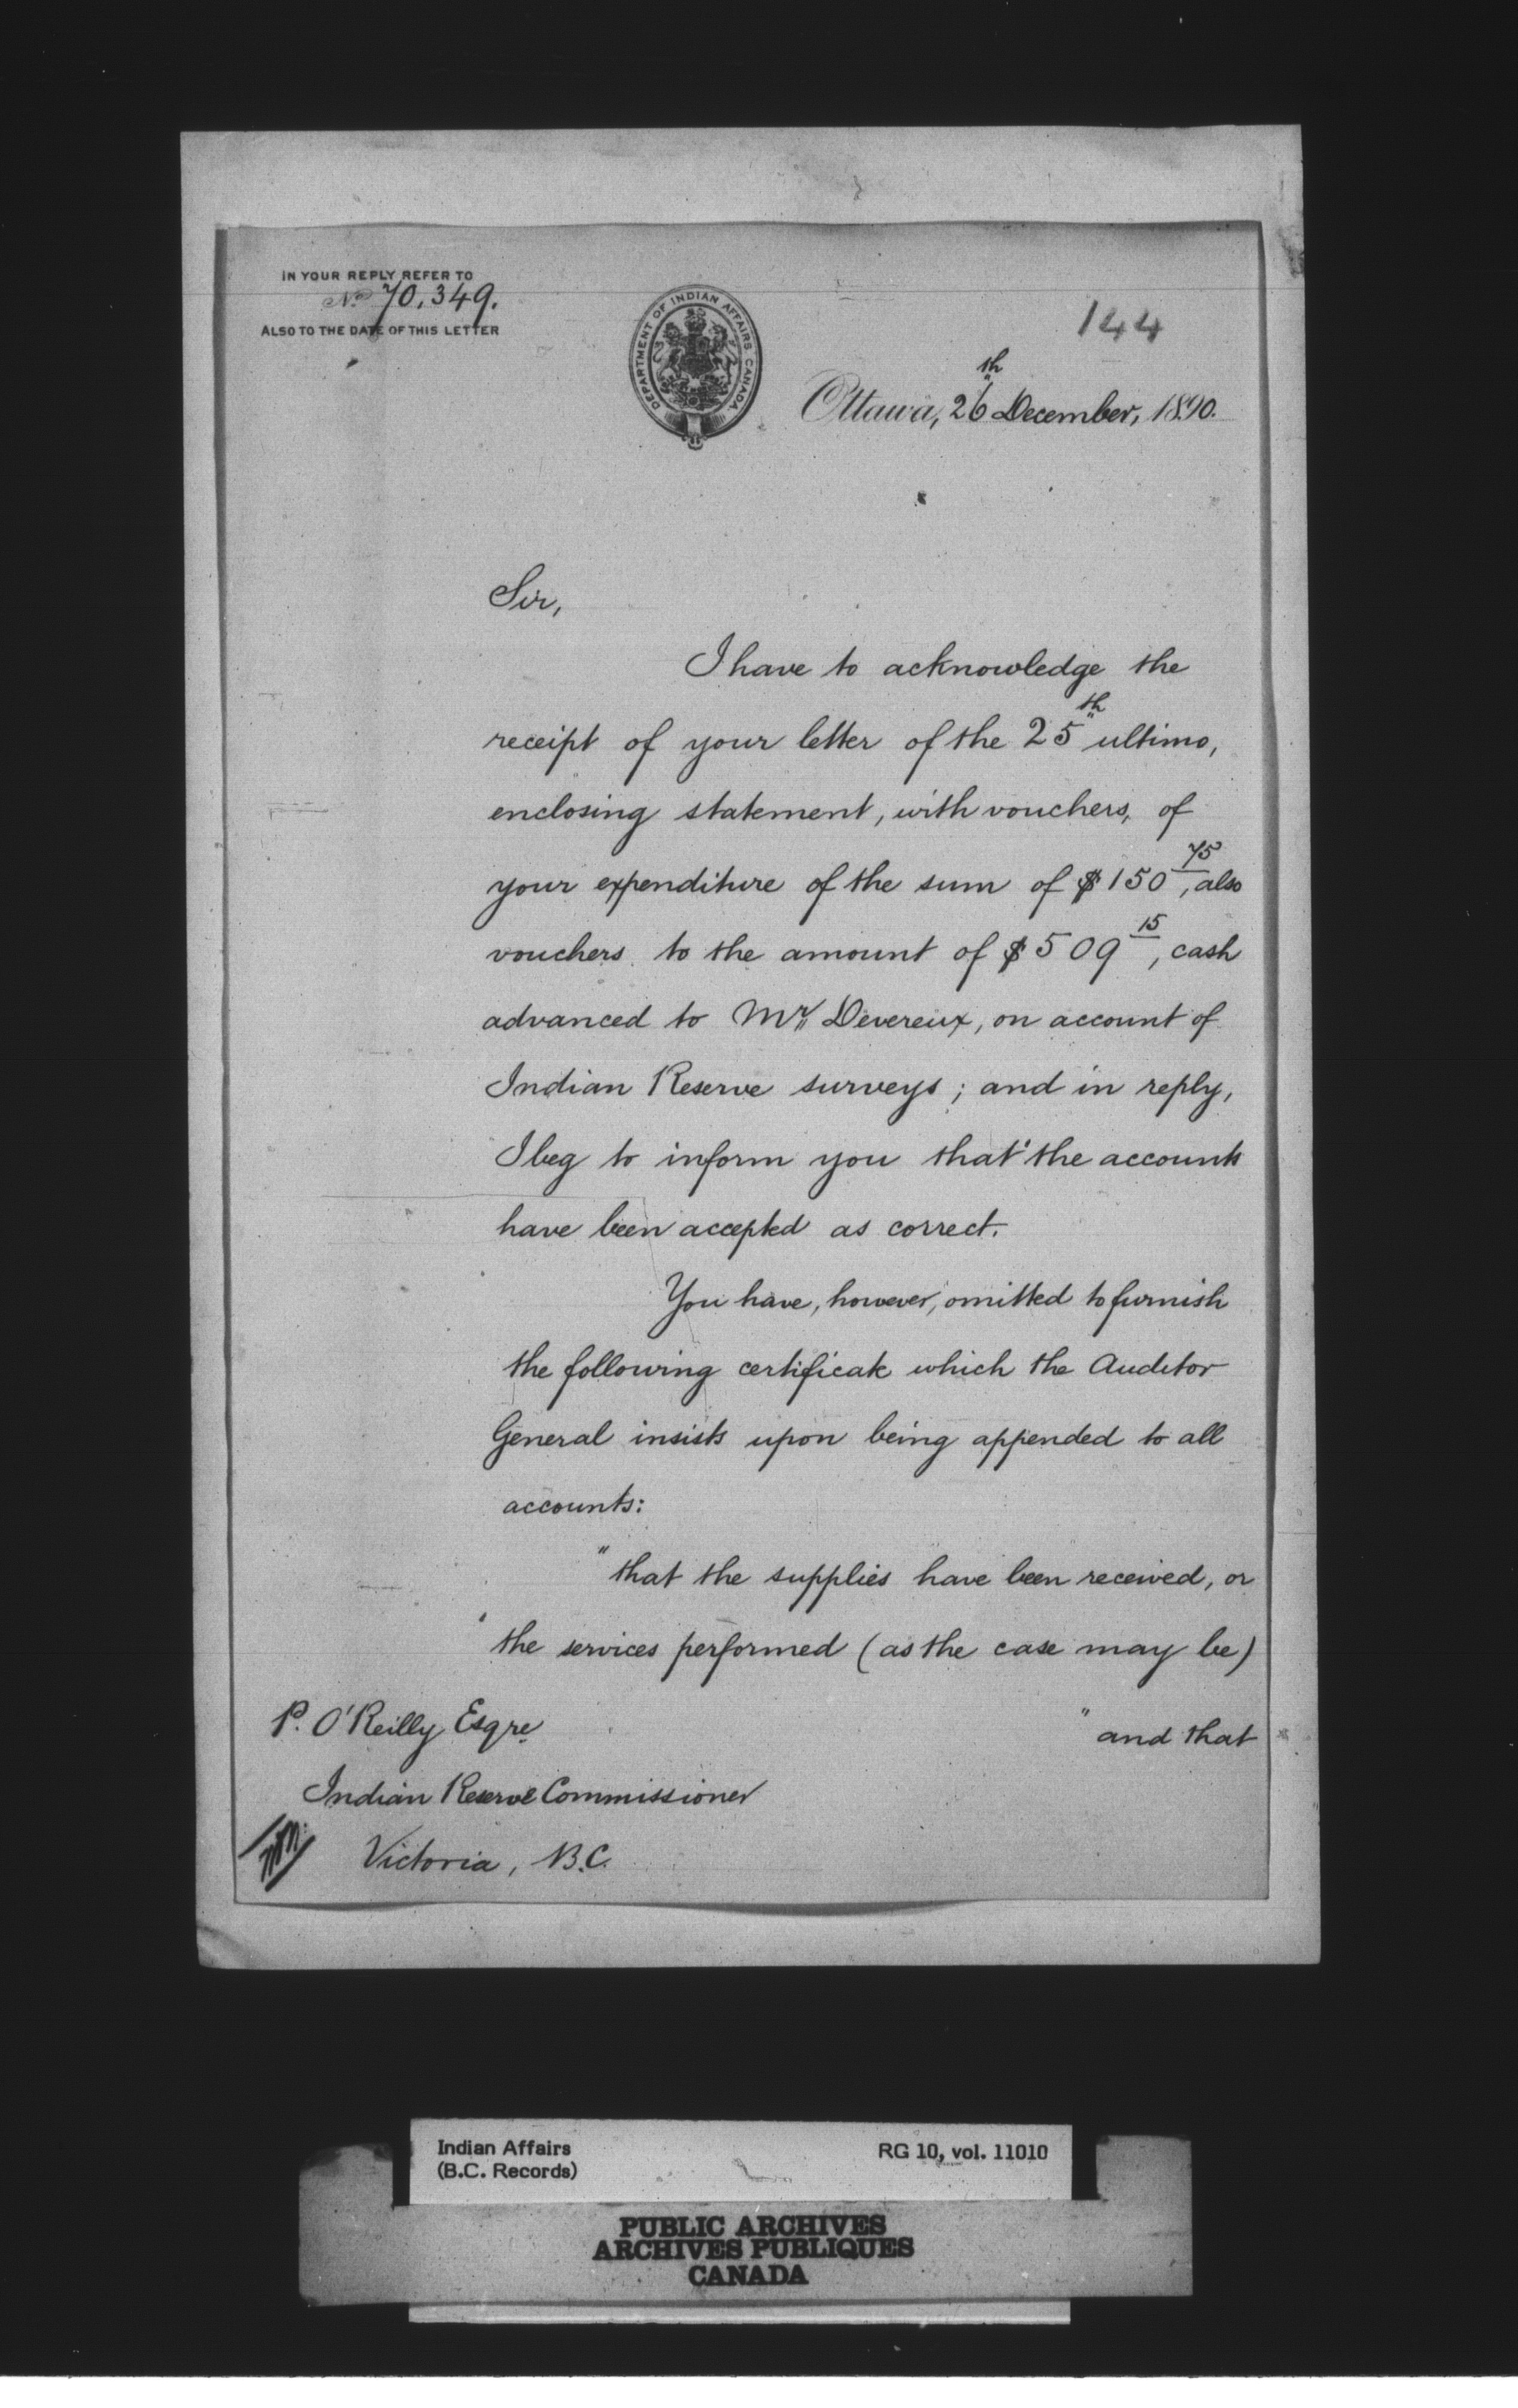 IN YOUR REPLY REFER TO
No 70,349.
ALSO TO THE DATE OF THIS LETTER
DEPARTMENT OF INDIAN AFFAIRS CANADA
144
Ottawa, 26th December, 1890.
Sir,
I have to acknowledge the
receipt of your letter of the 25th ultimo,
enclosing statement, with vouchers, of
your expenditure of the sum of $150 75, also
vouchers to the amount of $509 15, cash
advanced to Mr Devereux, on account of
Indian Reserve surveys; and in reply,
I beg to inform you that the accounts
have been accepted as correct.
You have, however, omitted to furnish
the following certificate which the Auditor
General insists upon being appended to all
accounts:
"that the supplies have been received, or
"the services performed (as the case may be)
"and that
P. O'Reilly Esqre
Indian Reserve Commissioner
Victoria, B.C.
Indian Affairs
(B.C. Records)
RG 10, vol. 11010
PUBLIC ARCHIVES
ARCHIVES PUBLIQUES
CANADA